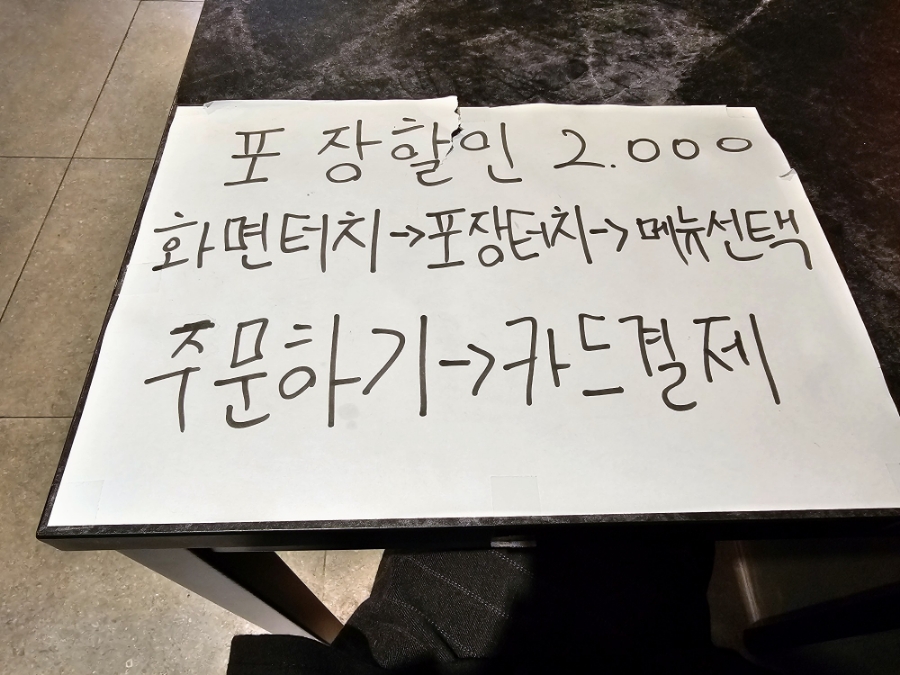 포장할인 2.000
화면터치→포장터치→메뉴선택
주문하기→카드결제